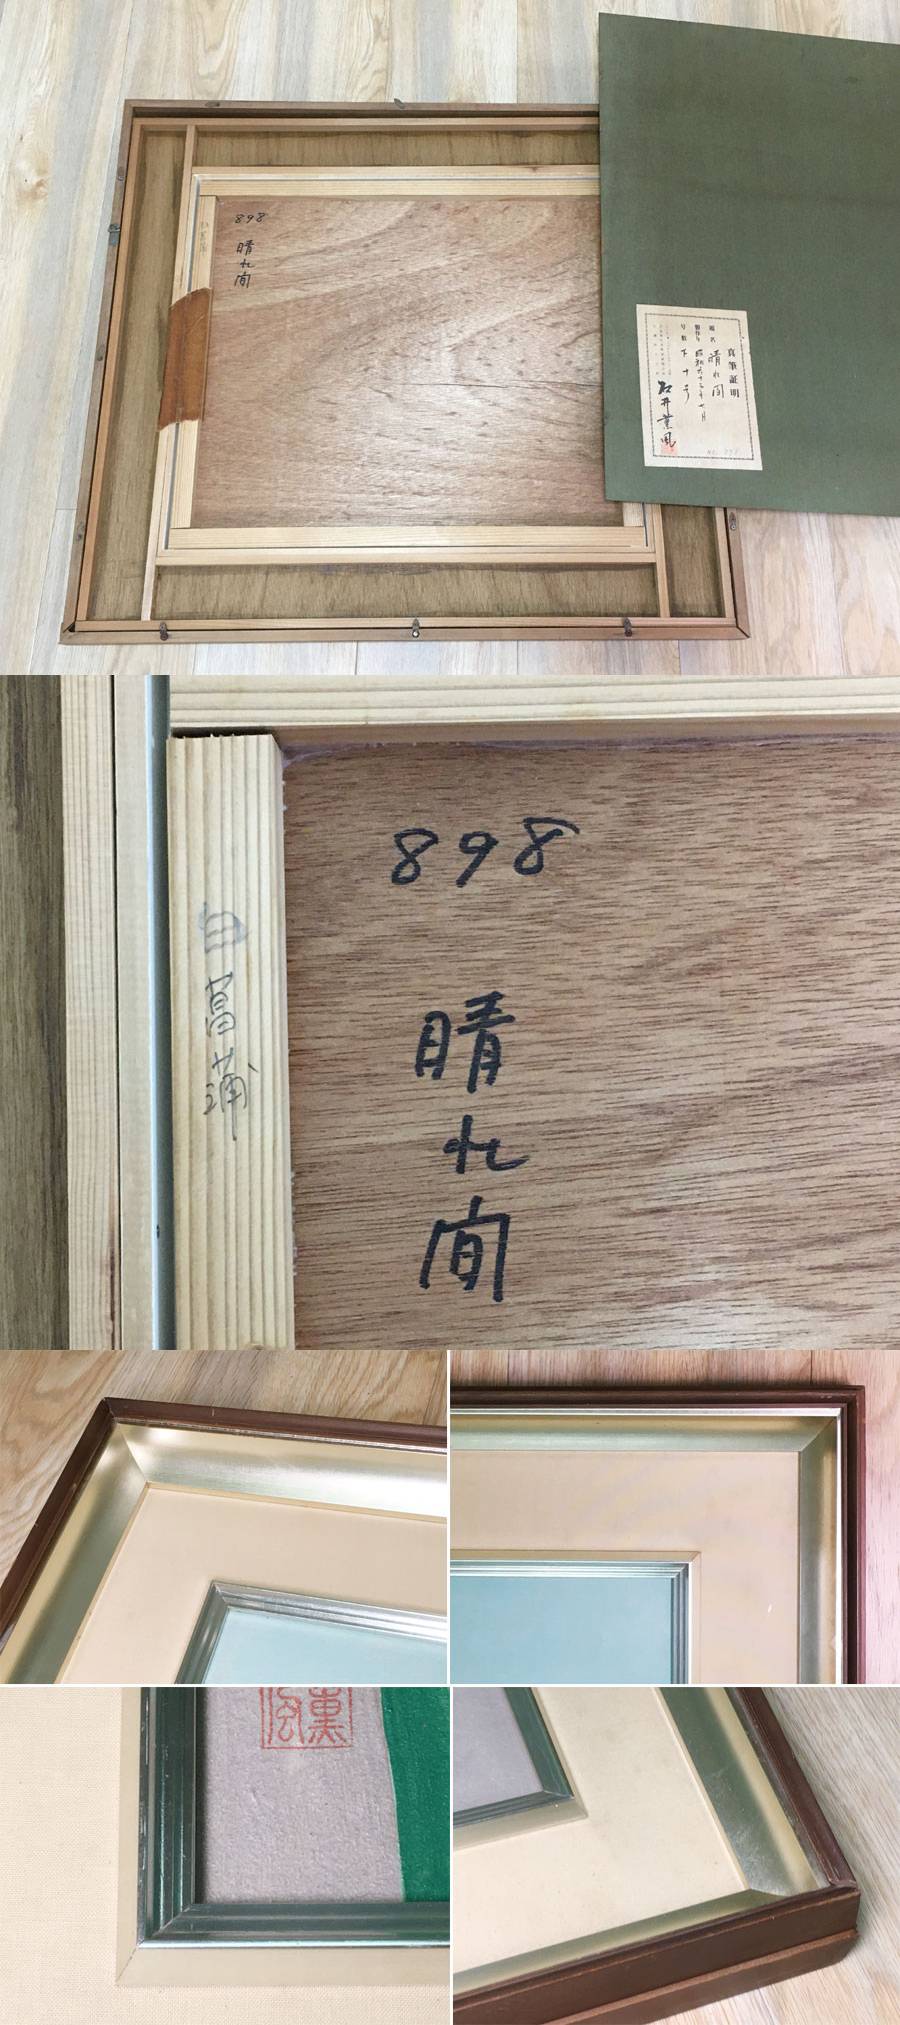 898
晴れ間
真筆証明
題名 晴れ間
製作年 昭和五十三年七月
号数 下十号
石井薫風
898
白菖蒲
晴れ間
薫風